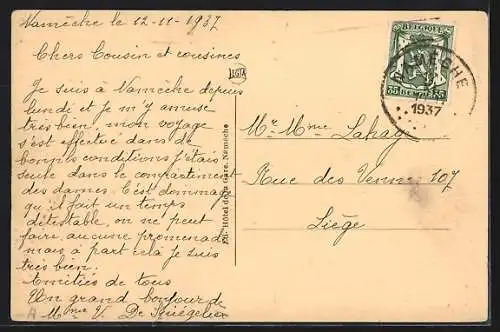 Namêche le 12-11-1937
Chers Cousin et cousines
Je suis à Namêche depuis
lundi et je m'y amuse
très bien, mon voyage
s'est effectué dans de
bonnes conditions j'étais
seule dans le compartiment
des dames. C'est dommage
qu'il fait un temps
détestable, on ne peut
faire, aucune promenade
mais à part celà je suis
très bien.
Amitiés de tous
Un grand bonjour de
Mme V. De
LEGIA
Édit. Hôtel de la Gare, Namêche
BELGIQUE BELGIË
35 CENT 35
NAMÈCHE
1937
Mr Mme Lahaye
Rue des Vennes 107
Liège